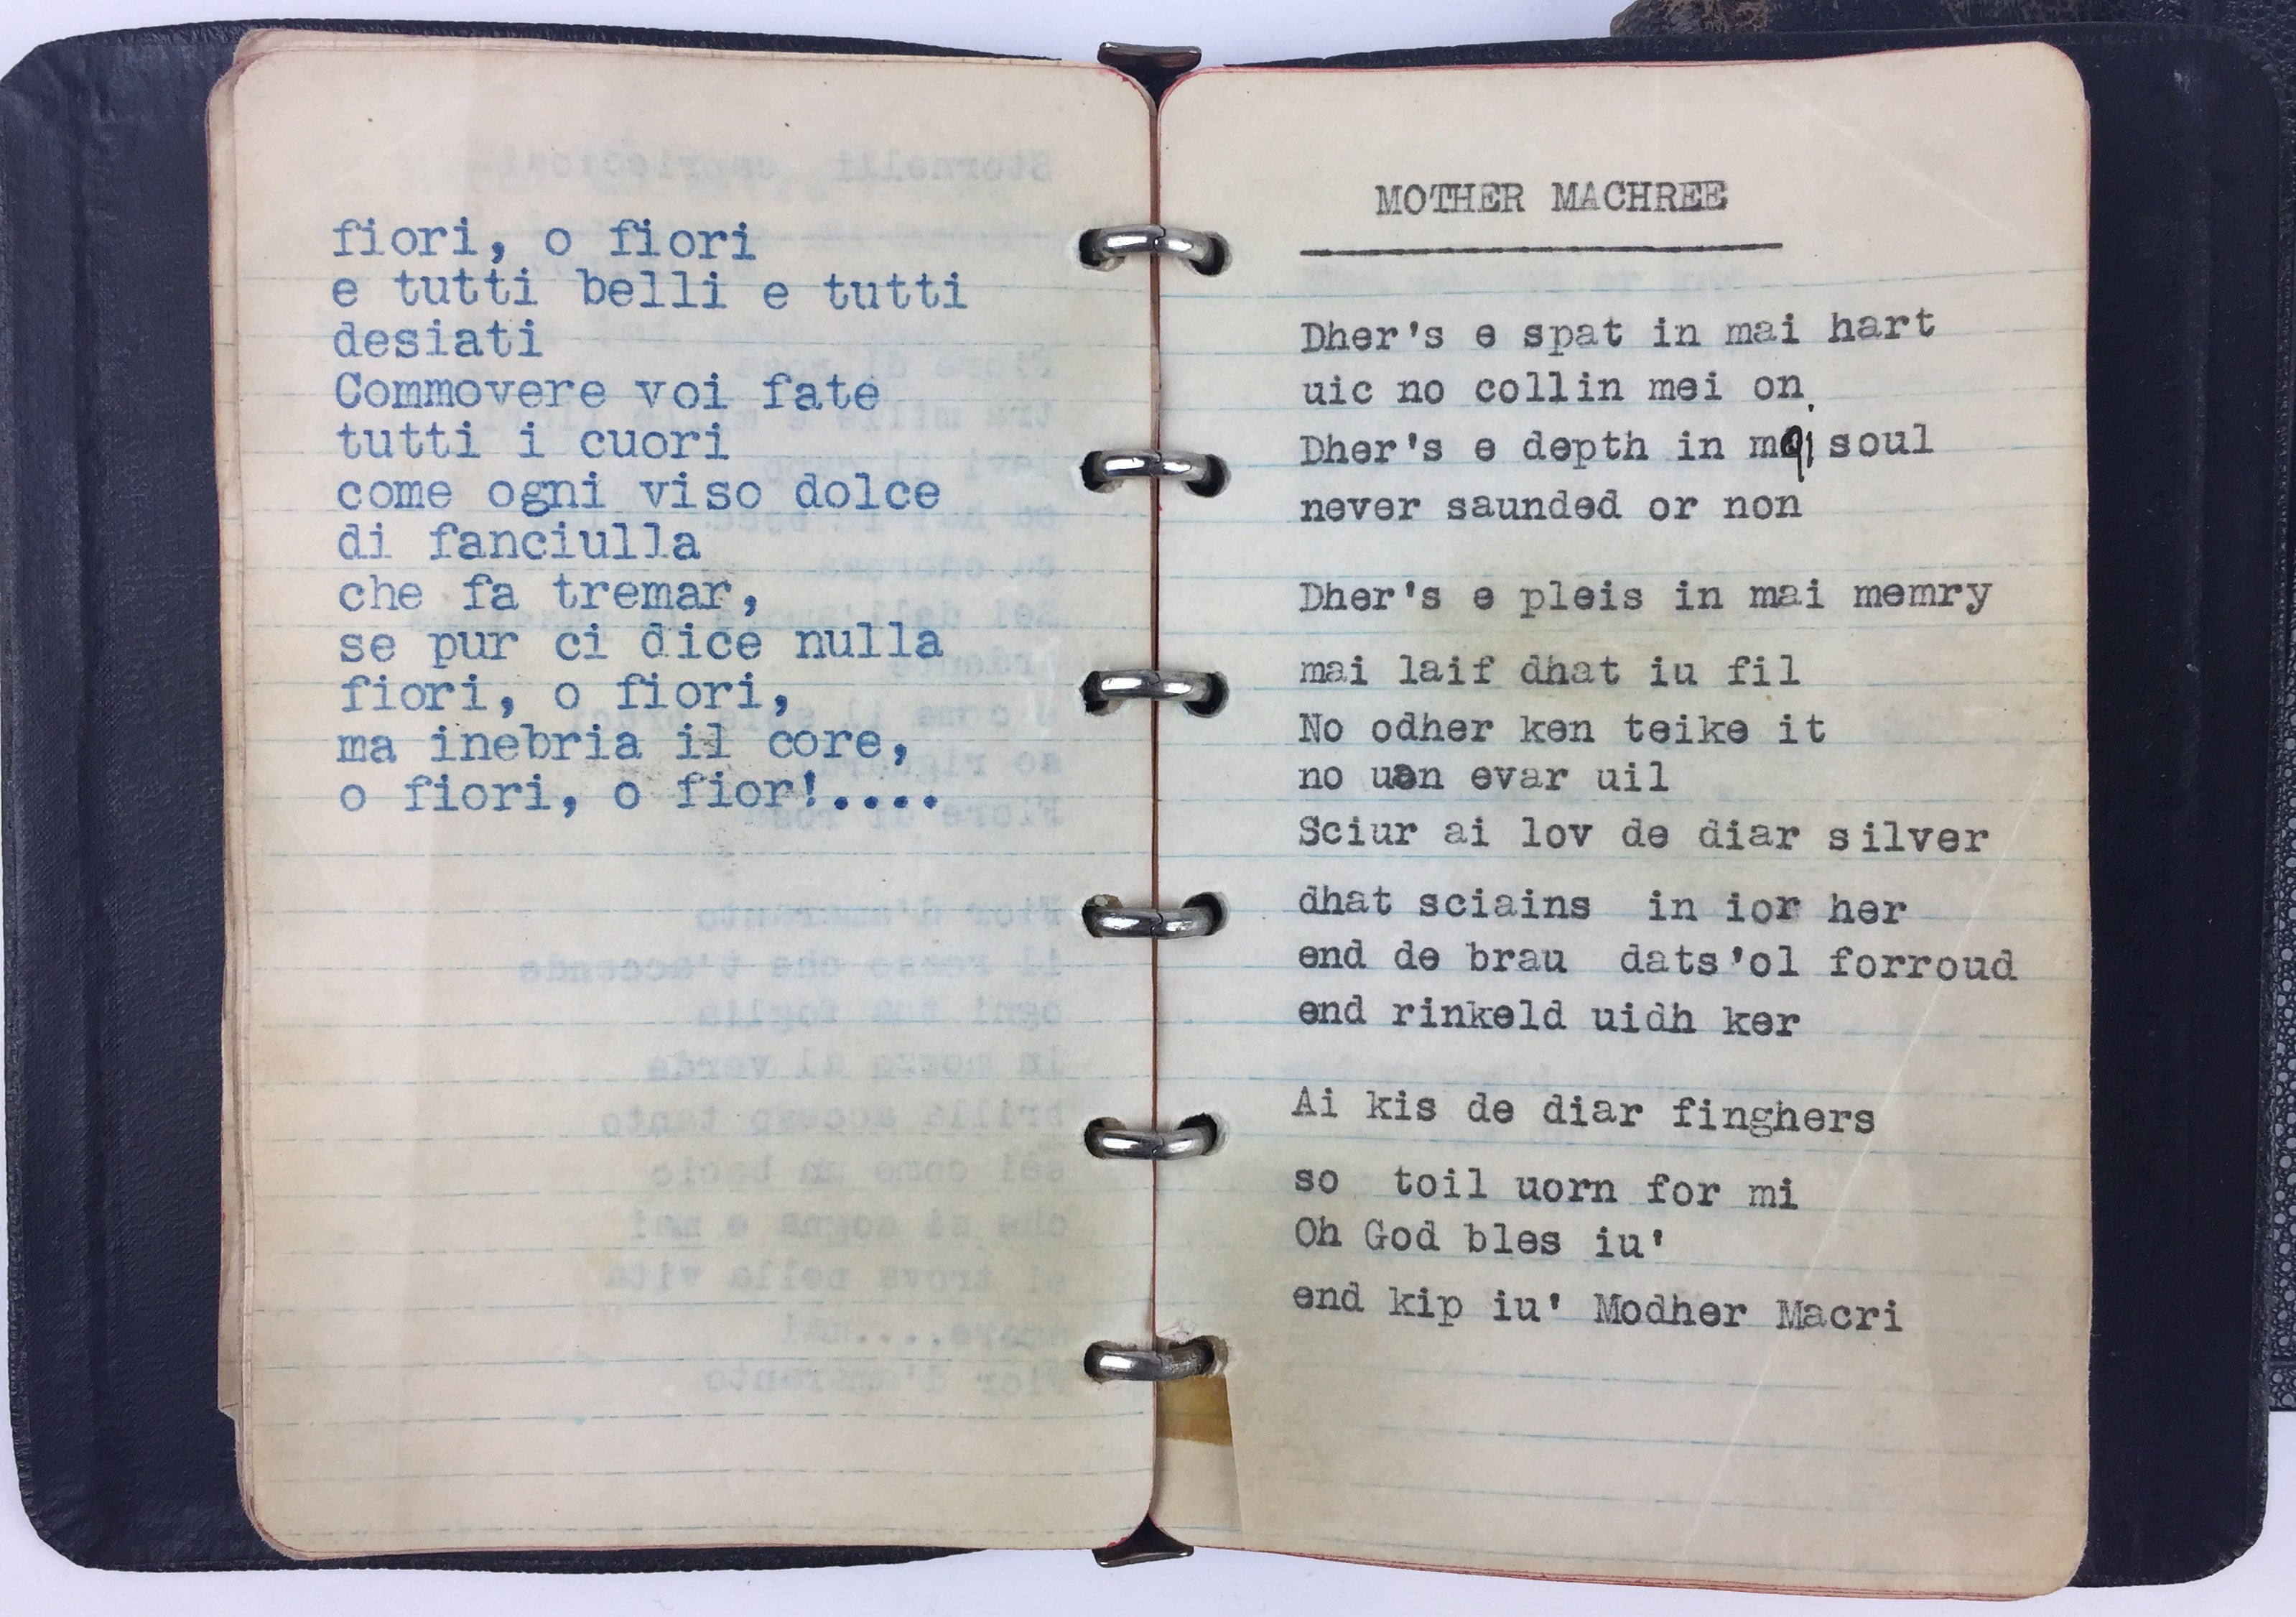 fiori, o fiori
e tutti belli e tutti
desiati
Commovere voi fate
tutti i cuori
come ogni viso dolce
di fanciulla
che fa tremar,
se pur ci dice nulla
fiori, o fiori,
ma inebria il core,
o fiori, o fior!....
MOTHER MACHREE
Dher's e spat in mai hart
uic no collin mei on
Dher's e depth in mai soul
never saunded or non
Dher's e pleis in mai memry
mai laif dhat iu fil
No odher ken teike it
no uen evar uil
Sciur ai lov de diar silver
dhat sciains in ior her
end de brau dats'ol forroud
end rinkeld uidh ker
Ai kis de diar finghers
so toil uorn for mi
Oh God bles iu'
end kip iu' Modher Macri